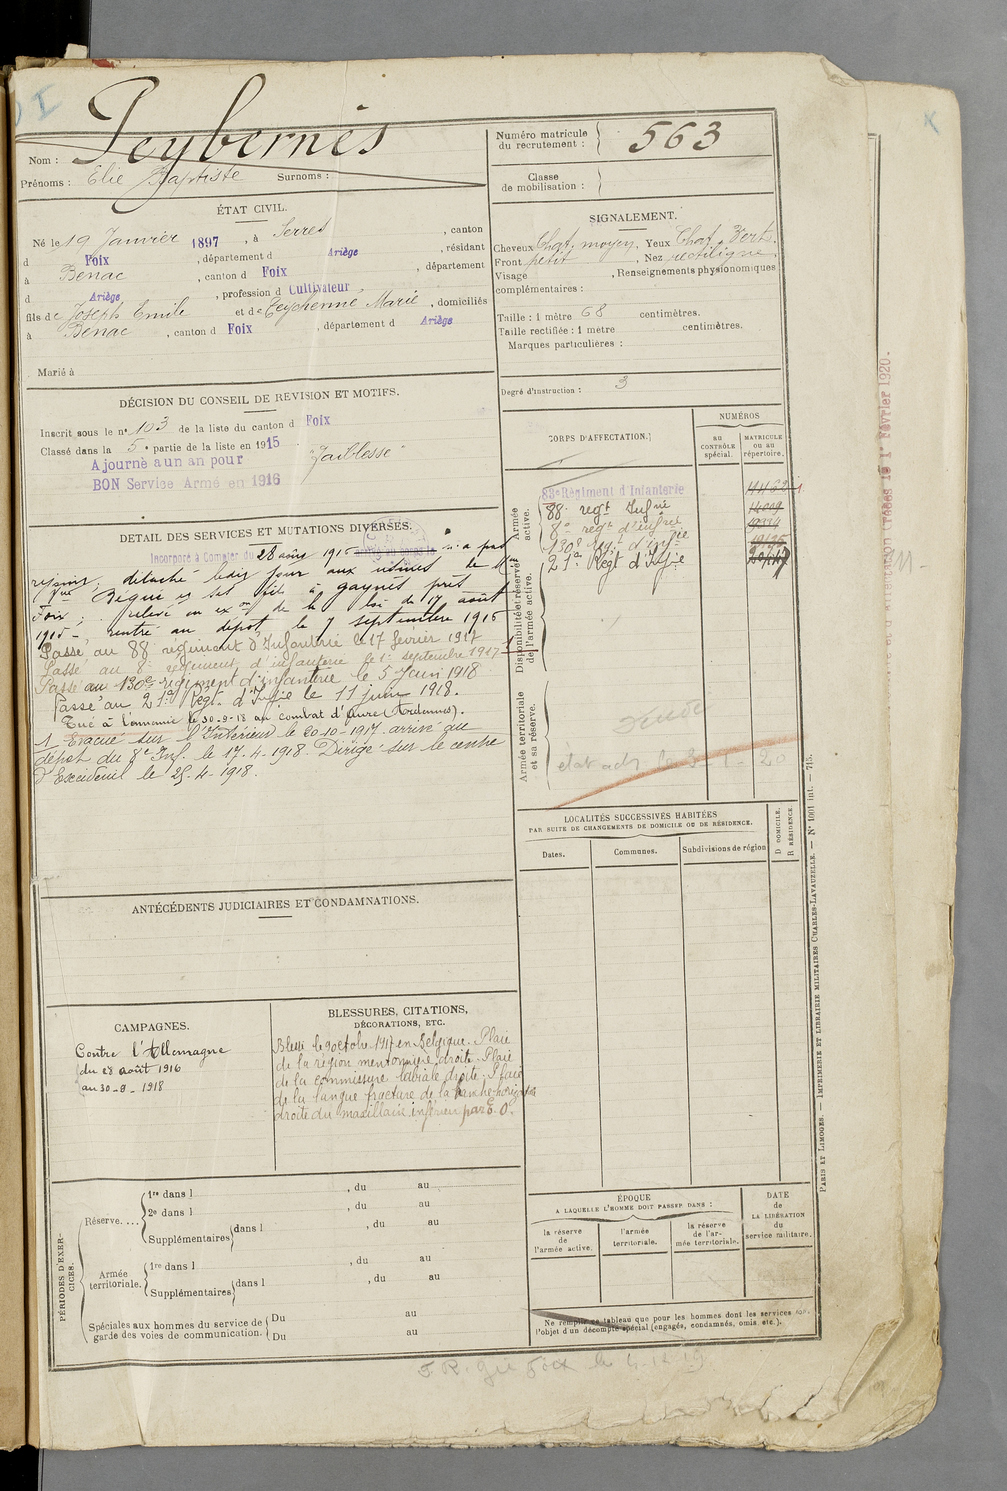 Peybernès
Nom :
Prénoms : Elie Baptiste Surnoms :
Numéro matricule du recrutement : 563
Classe de mobilisation :
ÉTAT CIVIL.
Né le 19 Janvier 1897, à Serres, canton
d Foix, département d Ariège, résidant
à Benac, canton d Foix, département
d Ariège, profession d Cultivateur
fils de Joseph Emile et de Teychenné Marie, domiciliés
à Benac, canton d Foix, département d Ariège
Marié à
SIGNALEMENT.
Cheveux Chat. moyen. Yeux Chat. Verts.
Front petit, Nez rectiligne.
Visage , Renseignements physionomiques
complémentaires :
Taille : 1 mètre 68 centimètres.
Taille rectifiée : 1 mètre centimètres.
Marques particulières :
Degré d'instruction : 3
DÉCISION DU CONSEIL DE REVISION ET MOTIFS.
Inscrit sous le n° 103 de la liste du canton d Foix
Classé dans la 5e partie de la liste en 1915
Ajourné a un an pour faiblesse
BON Service Armé en 1916
CORPS D'AFFECTATION.
NUMÉROS
AU CONTRÔLE spécial.
MATRICULE OU AU répertoire.
Armée active.
83e Régiment d'Infanterie
88e regt Infrie
8e regt d'infrie
130e Regt d'infie
21e Regt d'Infie
Disponibilité et réserve de l'armée active.
Armée territoriale et sa réserve.
DÉTAIL DES SERVICES ET MUTATIONS DIVERSES.
Incorporé à Compter du 28 août 1916 n'a pas
rejoint, détaché ledit jour aux usines de Mme
Vve Bégué et ses fils à gaynès près
Foix; relevé en exon de la loi du 17 août
1915 -, rentré au dépôt le 7 septembre 1916
Passé au 88e régiment d'Infanterie le 17 fevrier 1917
Passé au 8e régiment d'infanterie le 1er septembre 1917
Passé au 130e régiment d'infanterie le 5 Juin 1918
Passé au 21e Régt d'Infie le 11 juin 1918.
Tué à l'ennemi le 30-9-18 au combat d'Aure (Ardennes).
1 Evacué sur l'Intérieur le 20-10-1917 arrivé au
dépôt du 8e Inf. le 17-4-1918. Dirigé sur le centre
d'Excideuil le 25-4-1918.
LOCALITÉS SUCCESSIVES HABITÉES
PAR SUITE DE CHANGEMENTS DE DOMICILE OU DE RÉSIDENCE.
Dates.
Communes.
Subdivisions de région
D DOMICILE.
R RÉSIDENCE
ANTÉCÉDENTS JUDICIAIRES ET CONDAMNATIONS.
CAMPAGNES.
Contre l'Allemagne
du 28 août 1916
au 30-9-1918
BLESSURES, CITATIONS,
DÉCORATIONS, ETC.
Blessé le 9 octobre 1917 en Belgique. Plaie
de la région mentonnière droite. Plaie
de la commissure labiale droite.
de la langue fracture de la branche horizontale
droite du maxillaire inférieur par E. O.
PÉRIODES D'EXERCICES.
Réserve....
1re dans l , du au
2e dans l , du au
Supplémentaires dans l , du au
Armée territoriale.
1re dans l , du au
Supplémentaires dans l , du au
Spéciales aux hommes du service de garde des voies de communication.
Du au
Du au
ÉPOQUE
A LAQUELLE L'HOMME DOIT PASSER DANS :
la réserve de l'armée active.
l'armée territoriale.
la réserve de l'armée territoriale.
DATE de LA LIBÉRATION du service militaire.
Ne remplir ce tableau que pour les hommes dont les services font
l'objet d'un décompte spécial (engagés, condamnés, omis etc.).
PARIS ET LIMOGES. — IMPRIMERIE ET LIBRAIRIE MILITAIRES CHARLES-LAVAUZELLE. — N° 1001 int. — 715.